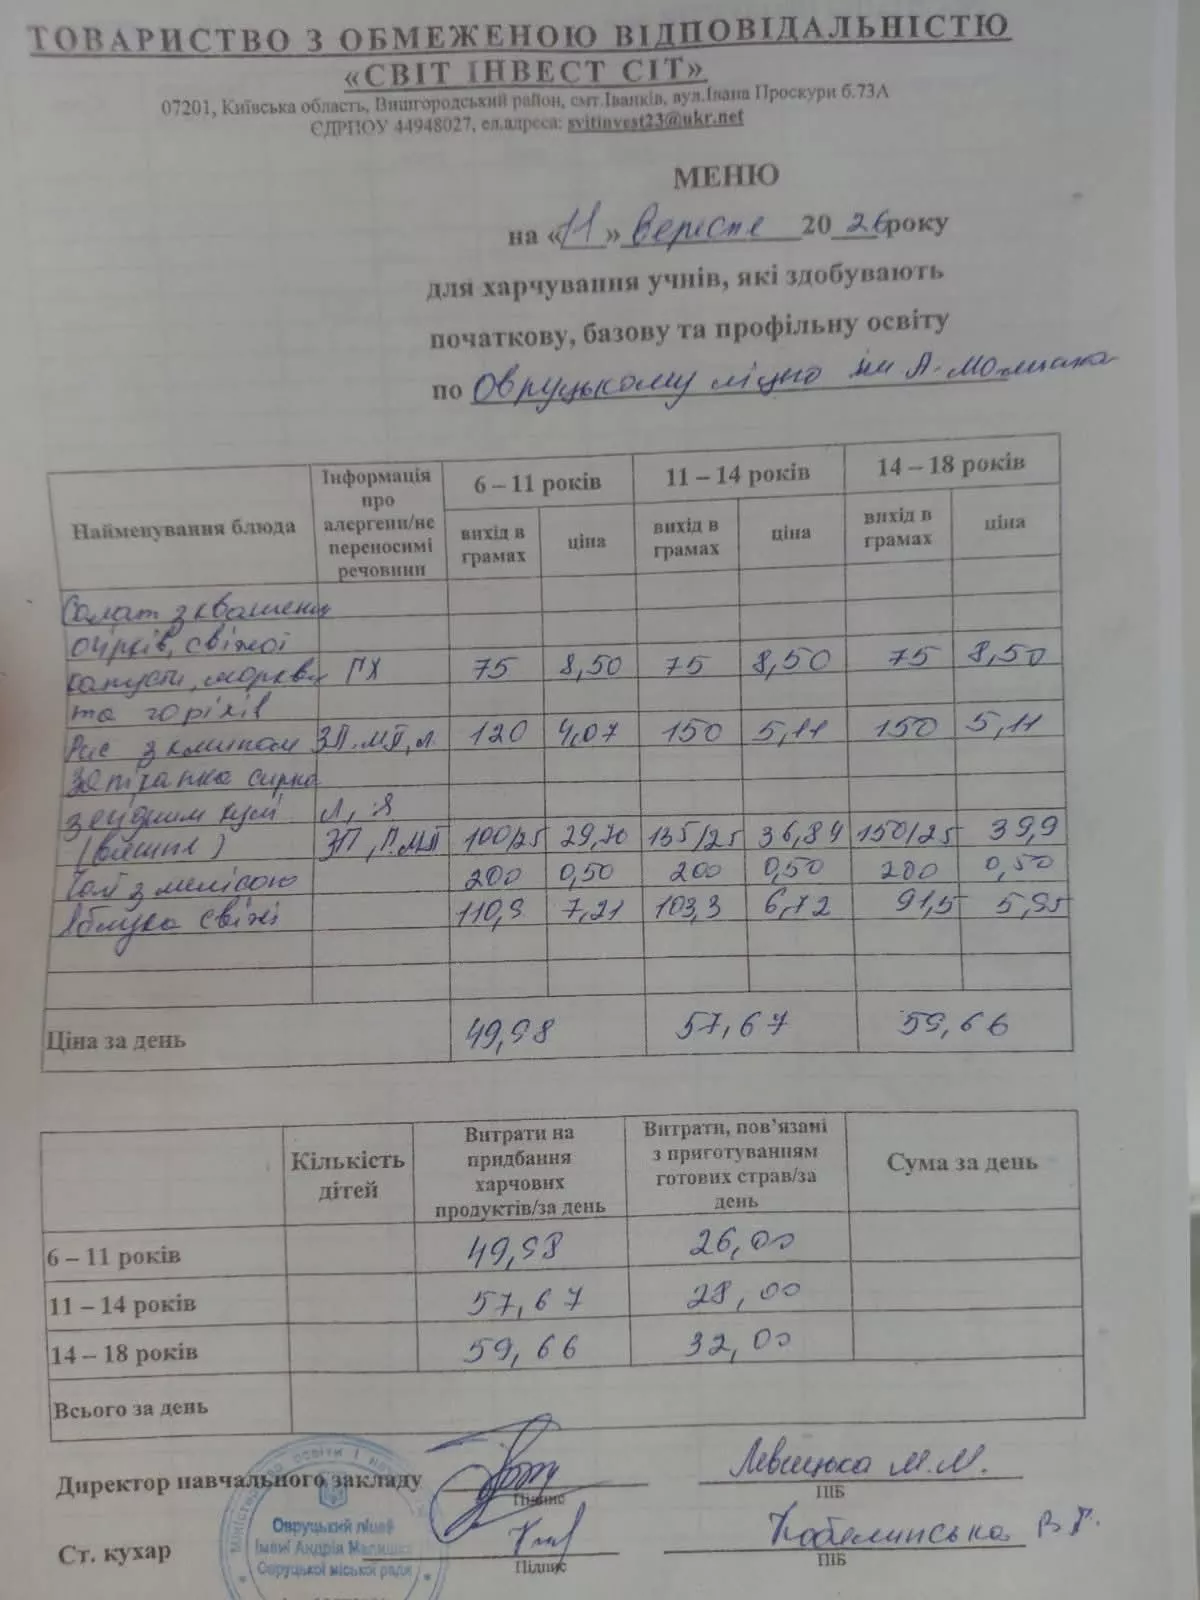 ТОВАРИСТВО З ОБМЕЖЕНОЮ ВІДПОВІДАЛЬНІСТЮ
«СВІТ ІНВЕСТ СІТ»
07201, Київська область, Вишгородський район, смт.Іванків, вул.Івана Проскури б.73А
ЄДРПОУ 44948027, ел.адреса: svitinvest23@ukr.net
МЕНЮ
на «11» Вересня 2026 року
для харчування учнів, які здобувають
початкову, базову та профільну освіту
по Овруцькому ліцею ім А. Малишка
Найменування блюда Інформація про алергени/непереносимі речовини 6 – 11 років 11 – 14 років 14 – 18 років
вихід в грамах ціна вихід в грамах ціна вихід в грамах ціна
Салат з квашених
огірків, свіжої
капусти, моркви ГХ 75 8,50 75 8,50 75 8,50
та горіхів
Рис з кмином ЗП, МП, л. 120 4,07 150 5,11 150 5,11
Запіканка сирна
з ягідним кулі Л, Я
(вишня) ЗП, Г, МП 100/25 29,70 135/25 36,84 150/25 39,9
Чай з мелісою 200 0,50 200 0,50 200 0,50
Яблука свіжі 110,9 7,21 103,3 6,72 91,5 5,95
Ціна за день 49,98 57,67 59,66
Кількість дітей Витрати на придбання харчових продуктів/за день Витрати, пов’язані з приготуванням готових страв/за день Сума за день
6 – 11 років 49,98 26,00
11 – 14 років 57,67 28,00
14 – 18 років 59,66 32,00
Всього за день
Директор навчального закладу Левицька М.М.
Підпис ПІБ
Ст. кухар Кобилинська В.Г.
Підпис ПІБ
Овруцький ліцей
імені Андрія Малишка
Овруцької міської ради